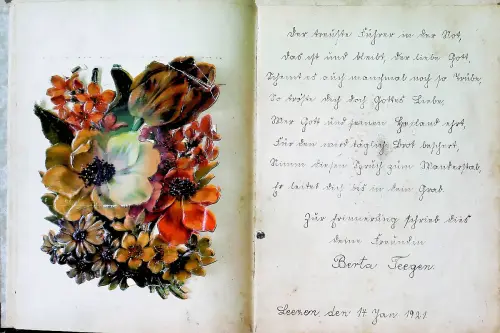 Der treuste Führer in der Not,
das ist und bleibt, der liebe Gott.
Scheint es auch manchmal noch so trübe,
So tröste dich doch Gottes Liebe,
Wer Gott und seinen Heiland ehrt,
Für den wird täglich Brot beschert,
Nimm diesen Spruch zum Wanderstab,
Er leitet dich bis in dein Grab.
Zur Erinnerung schrieb dies
deine Freundin
Berta Teegen
Leezen den 17 Jan 1921